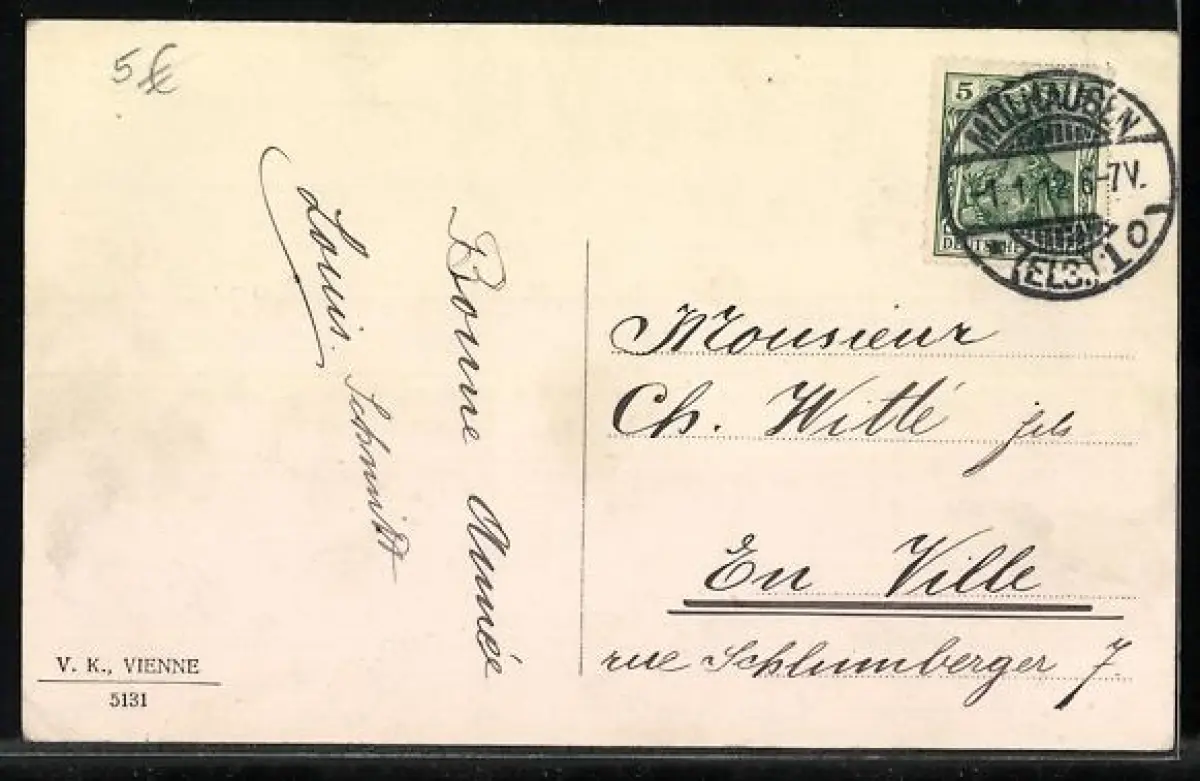 5
Bonne Année
Louis. Schmitt
5
MÜLHAUSEN
1.1.12 6-7V.
(ELS.) 10
DEUTSCHE
Monsieur
Ch. Witté fils
En Ville
rue Schlumberger 7
V. K., VIENNE
5131